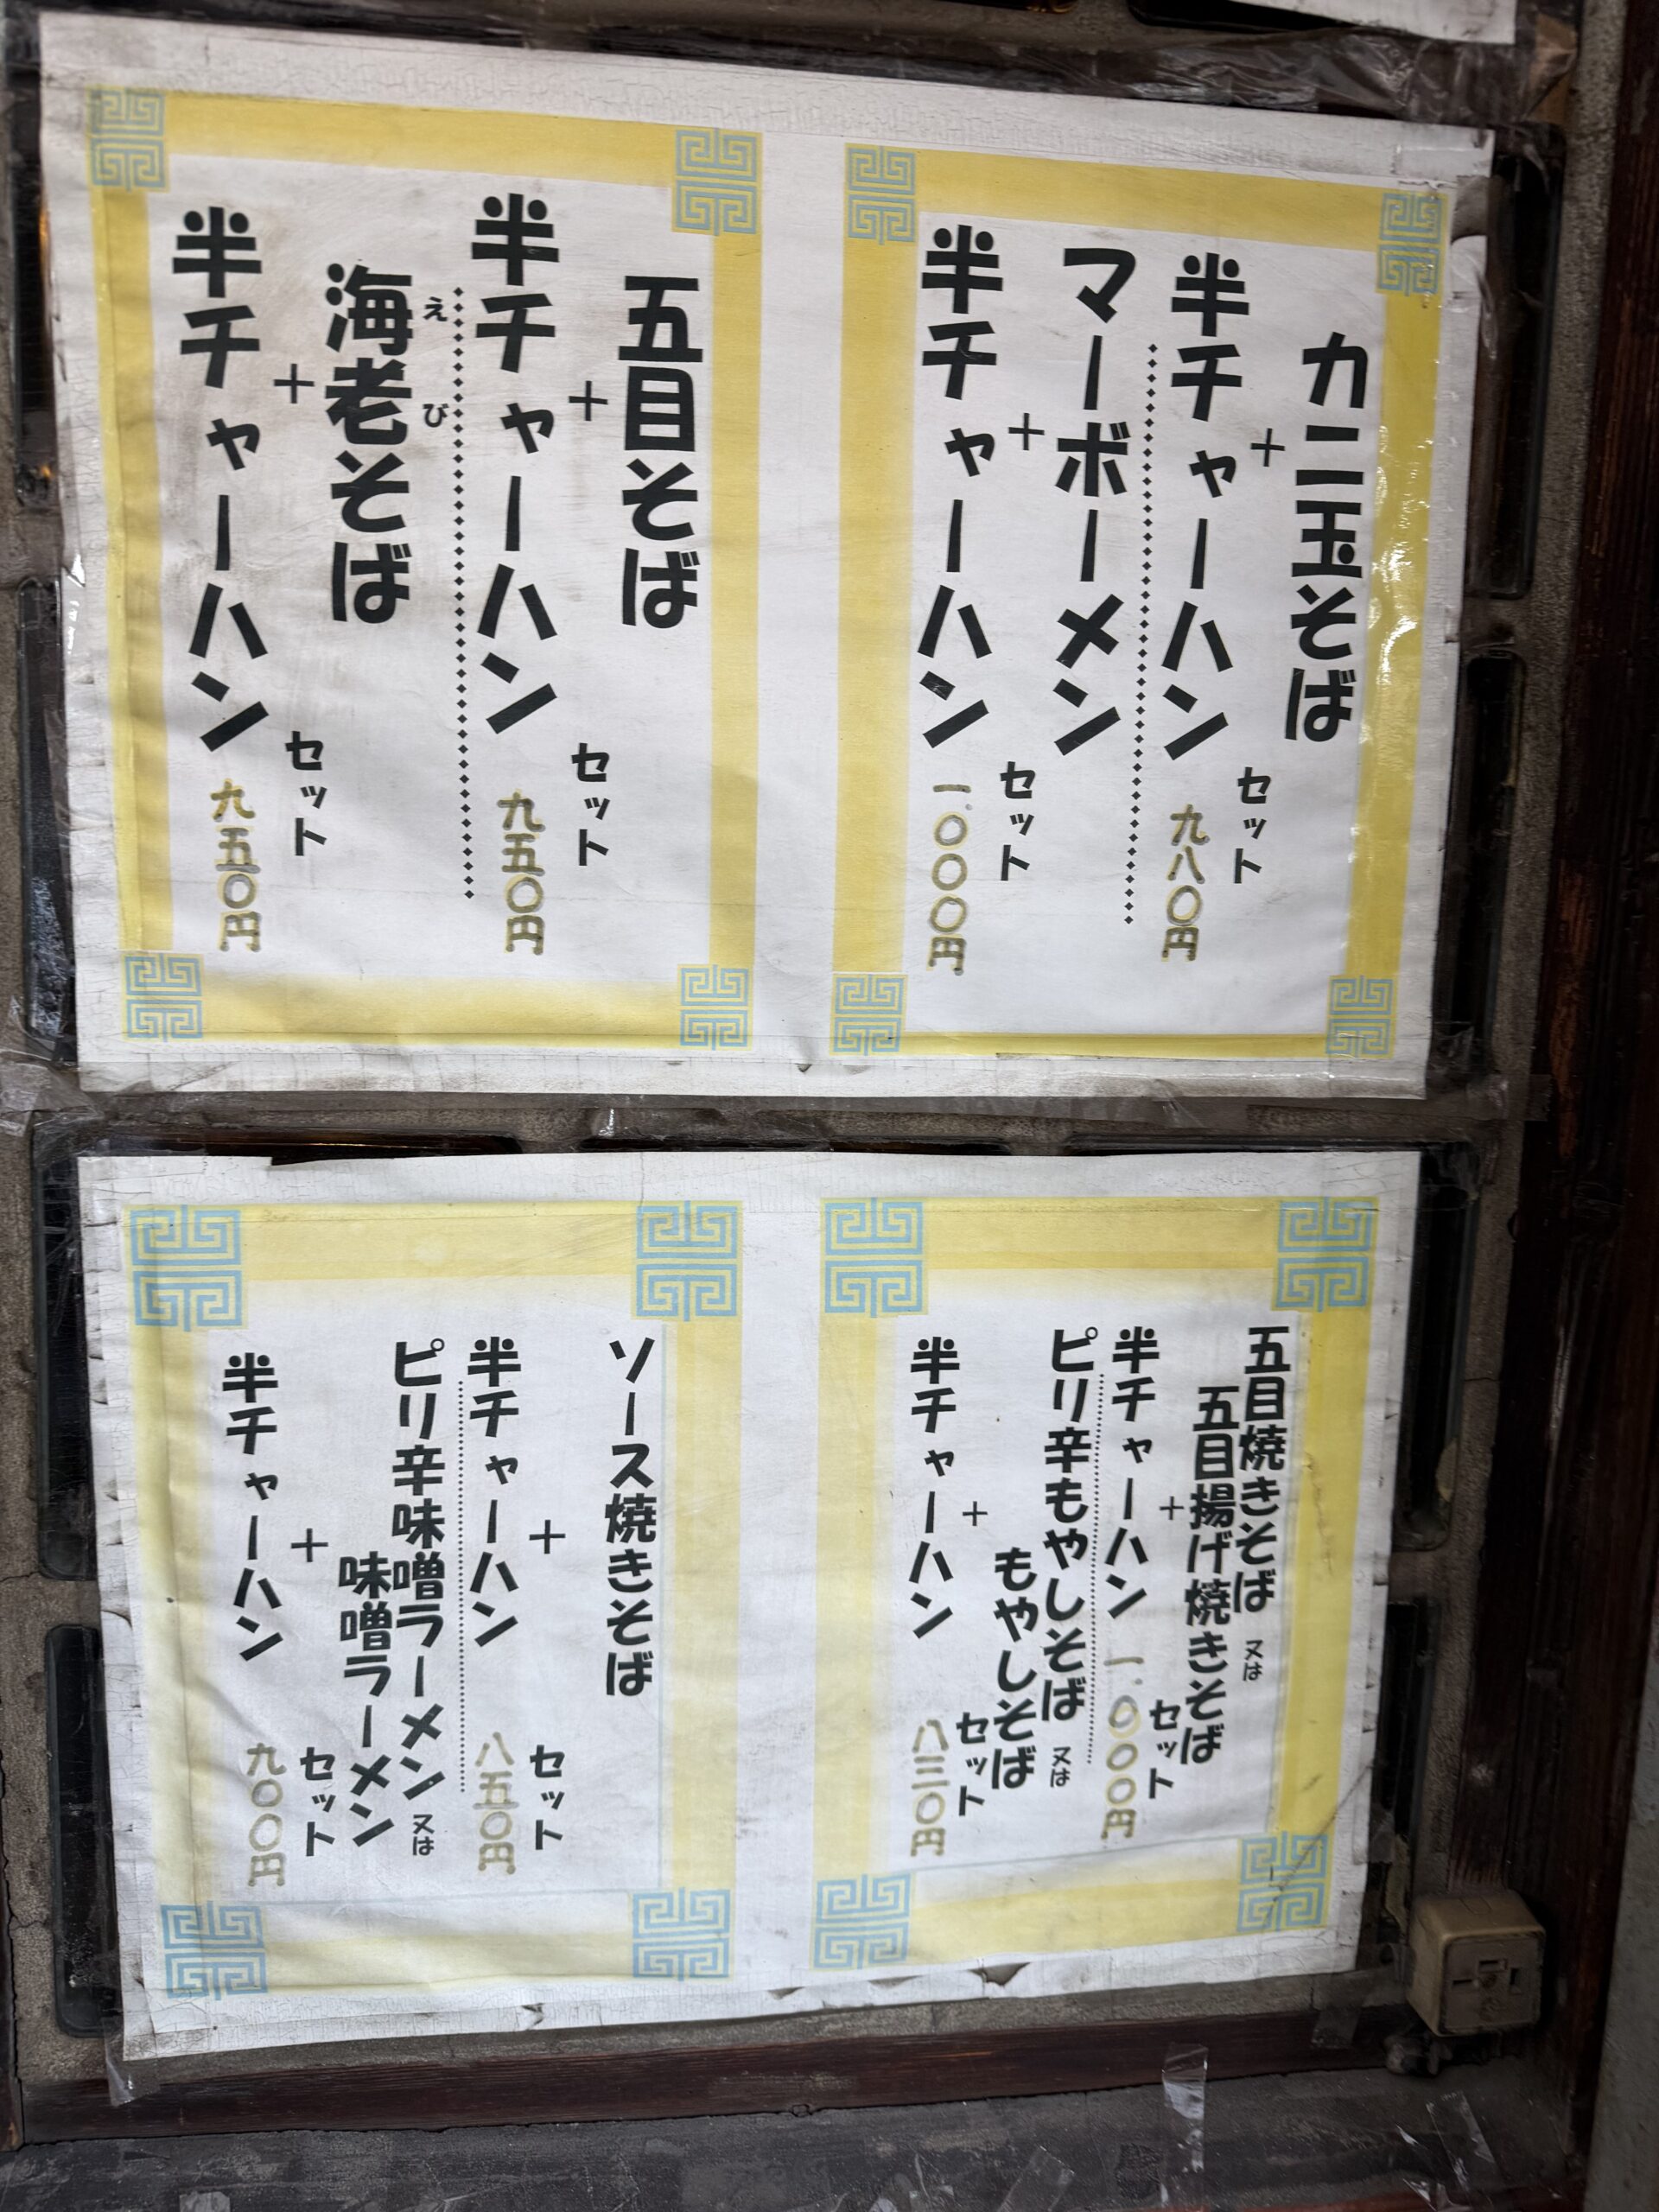 カニ玉そば
+
半チャーハン
セット
九八〇円
マーボーメン
+
半チャーハン
セット
一.〇〇〇円
五目そば
+
半チャーハン
セット
九五〇円
えび
海老そば
+
半チャーハン
セット
九五〇円
五目焼きそば 又は
五目揚げ焼きそば
+
半チャーハン
セット
一.〇〇〇円
ピリ辛もやしそば 又は
もやしそば
+
半チャーハン
セット
八三〇円
ソース焼きそば
+
半チャーハン
セット
八五〇円
ピリ辛味噌ラーメン 又は
味噌ラーメン
+
半チャーハン
セット
九〇〇円